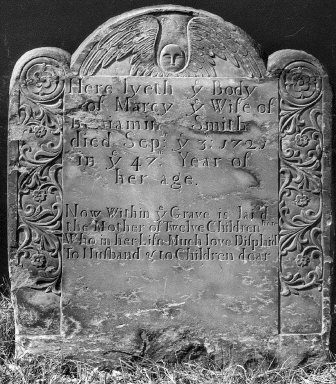 Here lyeth y Body
of Marcy y Wife of
Beniamin Smith
died Sep: y 3: 172
in y 47. Year of
her age.
Now Within y Grave is laid
the Mother of Twelve Children
Who in her Life Much love Displaid
To Husband & to Children dear